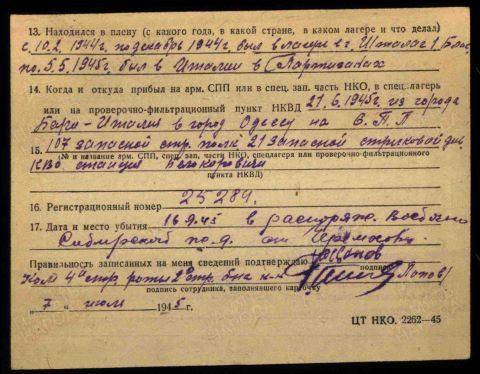 13. Находился в плену (с какого года, в какой стране, в каком лагере и что делал)
с 10.2.1944г. по декабрь 1944г. был в лагере в г. Италия
по 5.5.1945г. был в Италии в (Партизанах
14. Когда и откуда прибыл на арм. СПП или в спец. зап. часть НКО, в спец. лагерь
или на проверочно-фильтрационный пункт НКВД 21.6.1945г. из города
Бари-Италия в город Одессу на В.П.П
15. 107 запасной стр. полк 21 запасной стрелковой див.
(№ и название арм. СПП, спец. зап. части НКО, спецлагеря или проверочно-фильтрационного
КВО станция Белокоровичи
пункта НКВД)
16. Регистрационный номер 25284.
17. Дата и место убытия 16.9.45 в распоряж. Восточно
Сибирской ж.д. ст. Черемхово
Правильность записанных на меня сведений подтверждаю
подпись
Ком 4й стр. роты 2 стр. б-на к-н Попов/
подпись сотрудника, заполнявшего карточку
"7" июля 1945 г.
ЦТ НКО. 2262—45